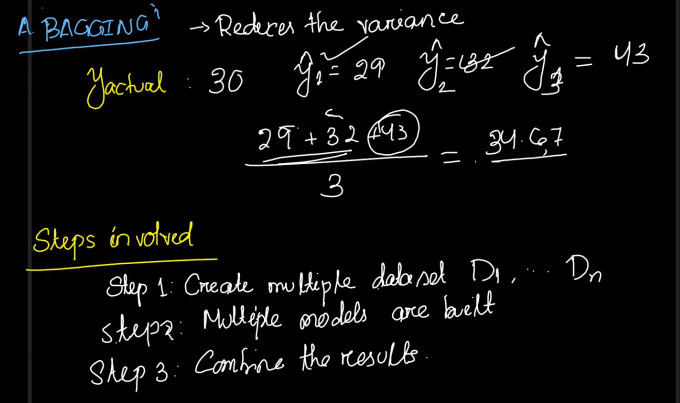 A. BAGGING → Reduces the variance
Yactual : 30 ŷ1 = 29 ŷ2 = 32 ŷ3 = 43
29 + 32 + 43
3
= 34.67
Steps involved
Step 1: Create multiple dataset D1, ... Dn
step2: Multiple models are built
Step 3: Combine the results.